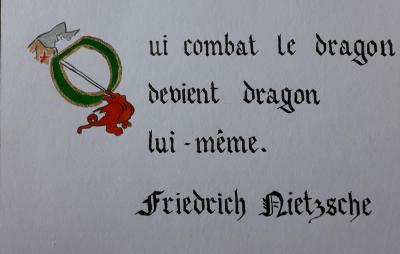 Qui combat le dragon
devient dragon
lui-même.
Friedrich Nietzsche